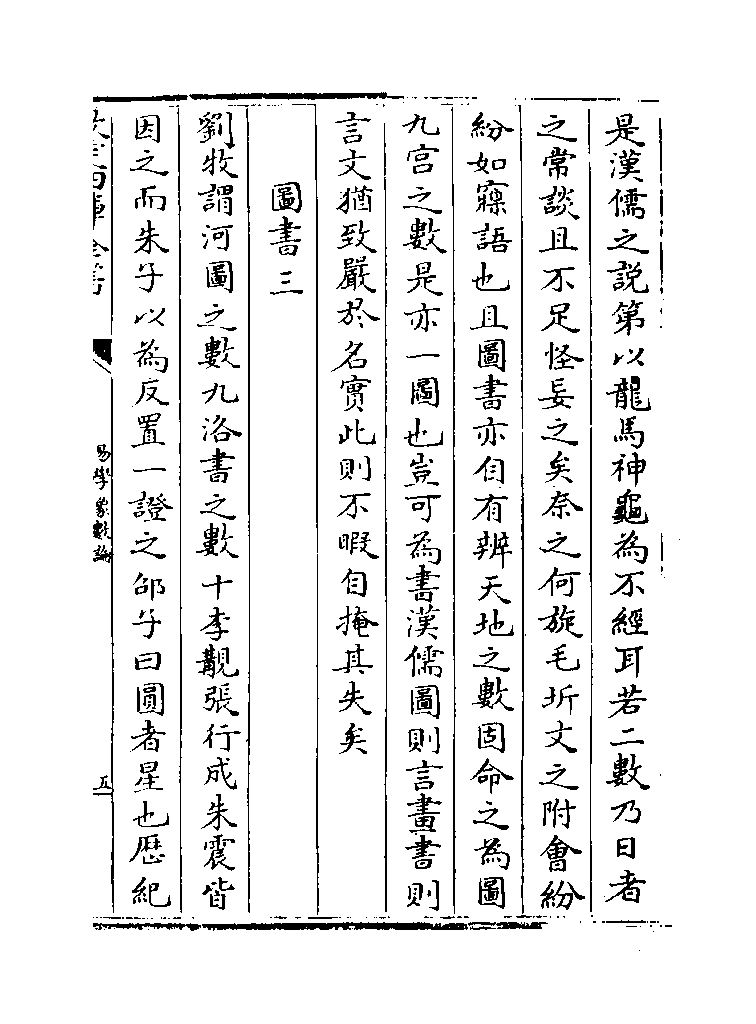 是漢儒之説第以龍馬神龜為不經耳若二數乃日者
之常談且不足怪妄之矣奈之何旋毛坼文之附會紛
紛如寱語也且圖書亦自有辨天地之數固命之為圖
九宫之數是亦一圖也豈可為書漢儒圖則言畫書則
言文猶致嚴於名實此則不暇自掩其失矣
圖書三
劉牧謂河圖之數九洛書之數十李觀張行成朱震皆
因之而朱子以為反置一證之邵子曰圓者星也厯紀
欽定四庫全書
易學象數論
五